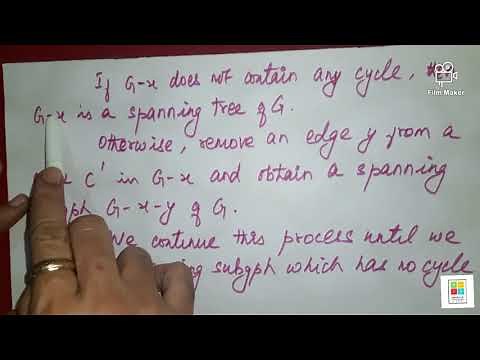 If G-x does not contain any cycle,
G-x is a spanning tree of G.
Otherwise, remove an edge y from a
C' in G-x and obtain a spanning
G-x-y of G.
We continue this process until we
subgph which has no cycle
Film Maker